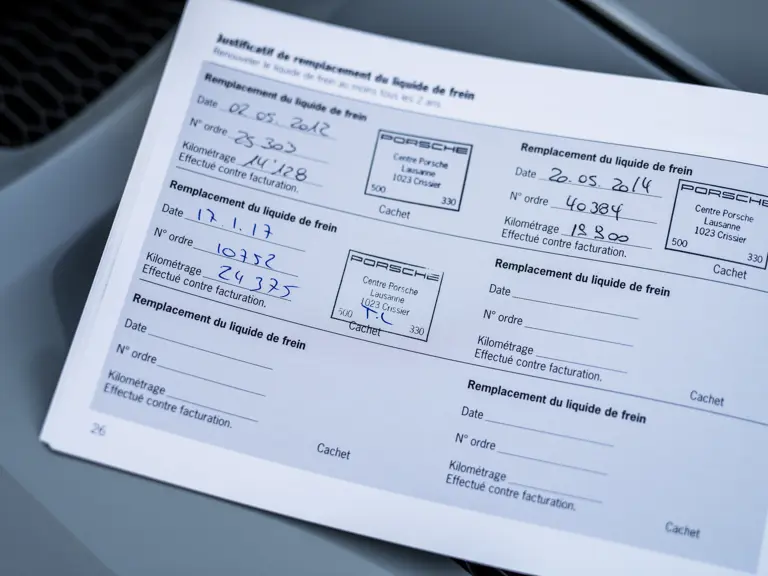 Justificatif de remplacement du liquide de frein
Renouveler le liquide de frein au moins tous les 2 ans.
Remplacement du liquide de frein
Date 02 05. 2012
N° ordre 25 303
Kilométrage 14'128
Effectué contre facturation.
PORSCHE
Centre Porsche
Lausanne
1023 Crissier
500 330
Cachet
Remplacement du liquide de frein
Date 20. 05. 2014
N° ordre 40384
Kilométrage 18 800
Effectué contre facturation.
PORSCHE
Centre Porsche
Lausanne
1023 Crissier
500 330
Cachet
Remplacement du liquide de frein
Date 17. 1. 17
N° ordre 10752
Kilométrage 24 375
Effectué contre facturation.
PORSCHE
Centre Porsche
Lausanne
1023 Crissier
500 T.C 330
Cachet
Remplacement du liquide de frein
Date
N° ordre
Kilométrage
Effectué contre facturation.
Cachet
Remplacement du liquide de frein
Date
N° ordre
Kilométrage
Effectué contre facturation.
Cachet
Remplacement du liquide de frein
Date
N° ordre
Kilométrage
Effectué contre facturation.
Cachet
26